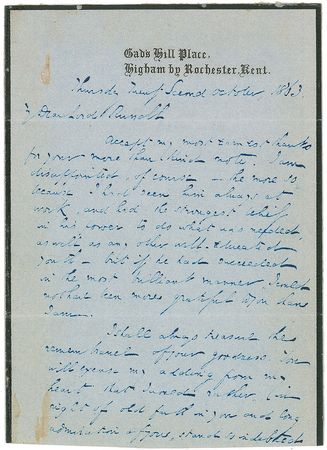 Gads Hill Place,
Higham by Rochester, Kent.
Thursday Twenty Second October 1863
My Dear Lord Russell
Accept my most earnest thanks
for your more than kind note. I am
disappointed, of course — the more so
because I had seen him always at
work, and had the strongest belief
in his power to do what was needed,
as well as any other well-educated
youth — but if he had succeeded
in the most brilliant manner, I could
not have been more grateful to you than
I am.
I shall always treasure the
remembrance of your goodness. You
will excuse my adding from my
heart that I would rather, in
right of old faith in you and long
admiration of you, stand indebted